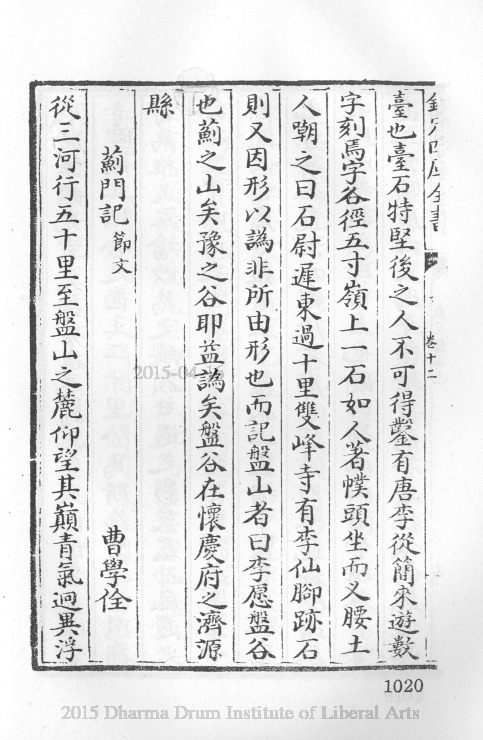 欽定四庫全書
卷十二
臺也臺石特堅後之人不可得鑿有唐李從簡來遊數
字刻焉字各徑五寸嶺上一石如人著幞頭坐而叉腰土
人嘲之曰石尉遲東過十里雙峰寺有李仙腳跡石
則又因形以譌非所由形也而記盤山者曰李愿盤谷
也薊之山矣豫之谷耶益譌矣盤谷在懷慶府之濟源
縣
薊門記節文
曹學佺
從三河行五十里至盤山之麓仰望其巔青氣迥異浮
2015-04
1020
2015 Dharma Drum Institute of Liberal Arts